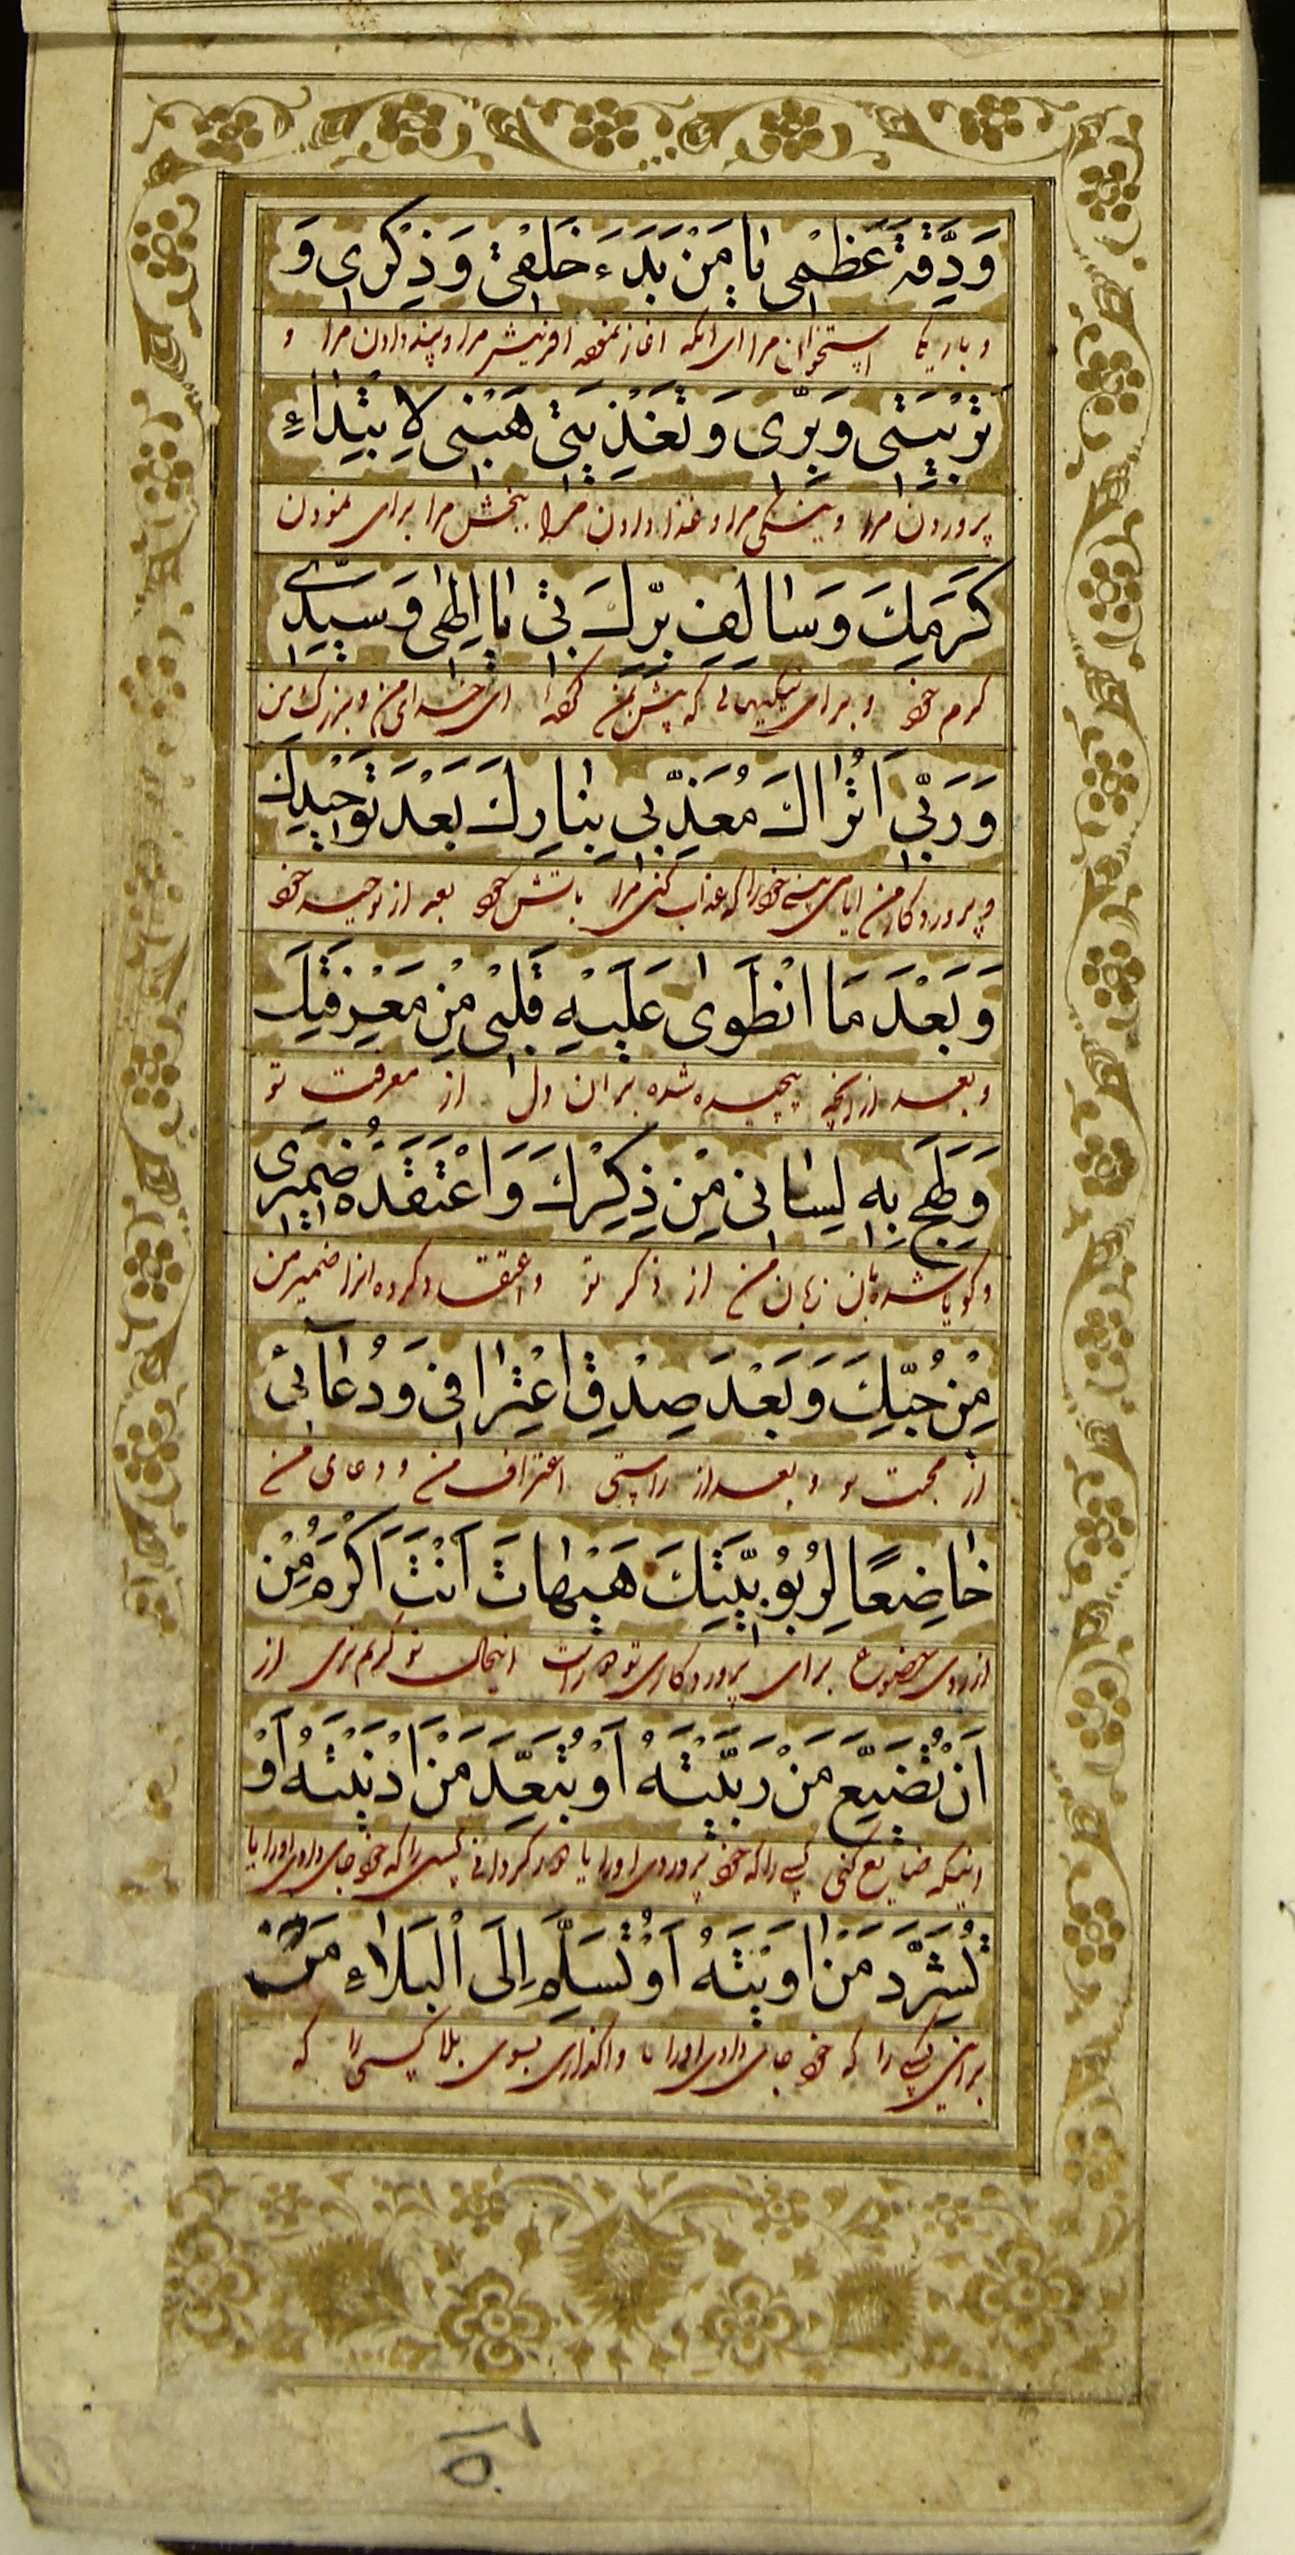 وَدِقَّةَ عَظْمِی یٰا مَنْ بَدَءَ خَلْقِی وَ ذِکْرِی وَ
و باریکی استخوان مرا ای انکه اغاز نموده افرینش مرا و پند دادن مرا و
تَرْبِیَتِی وَ بِرِّی وَ تَغْذِیَتِی هَبْنِی لِابْتِدٰاءِ
پروردن مرا و نیکی مرا و غذا دادن مرا ببخش مرا برای نمودن
کَرَمِكَ وَ سٰالِفِ بِرِّكَ بِی یٰا اِلٰهِی وَ سَیِّدِی
کرم خود و برای نیکیهائی که پیش بمن کرده ای خدای من و بزرك من
وَ رَبِّی اَتُرٰاكَ مُعَذِّبِی بِنٰارِكَ بَعْدَ تَوْحِیدِكَ
و پروردکار من ایا می بینی خود را که عذاب کنی مرا باتش خود بعد از توحید خود
وَ بَعْدَ مَا انْطَوٰی عَلَیْهِ قَلْبِی مِنْ مَعْرِفَتِكَ
و بعد از انچه پیچیده شده بر ان دل از معرفت تو
وَ لَهِجَ بِهِ لِسٰانِی مِنْ ذِکْرِكَ وَ اعْتَقَدَهُ ضَمِیرِی
و کویا شده بان زبان من از ذکر تو و اعتقاد کرده انرا ضمیر من
مِنْ حُبِّكَ وَ بَعْدَ صِدْقِ اعْتِرٰافِی وَ دُعٰآئِی
از محبت تو و بعد از راستی اعتراف من و دعای من
خٰاضِعًا لِرُبُوُبِیَّتِكَ هَیْهٰاتَ اَنْتَ اَکْرَمُ مِنْ
از روی خضوع برای پروردکاری تو دور است اینحال تو کریم تری از
اَنْ تُضَیِّعَ مَنْ رَبَّیْتَهُ اَوْ تُبَعِّدَ مَنْ اَدْنَیْتَهُ اَوْ
اینکه ضایع کنی کسی را که خود پروردی اورا یا دور کردانی کسی را که خود جای دادی اورا یا
تُشَرِّدَ مَنْ اوَیْتَهُ اَوْ تُسَلِّمَ اِلَی الْبَلٰاءِ مَنْ
برانی کسی را که خود جای دادی اورا یا واکذاری بسوی بلا کسی را که